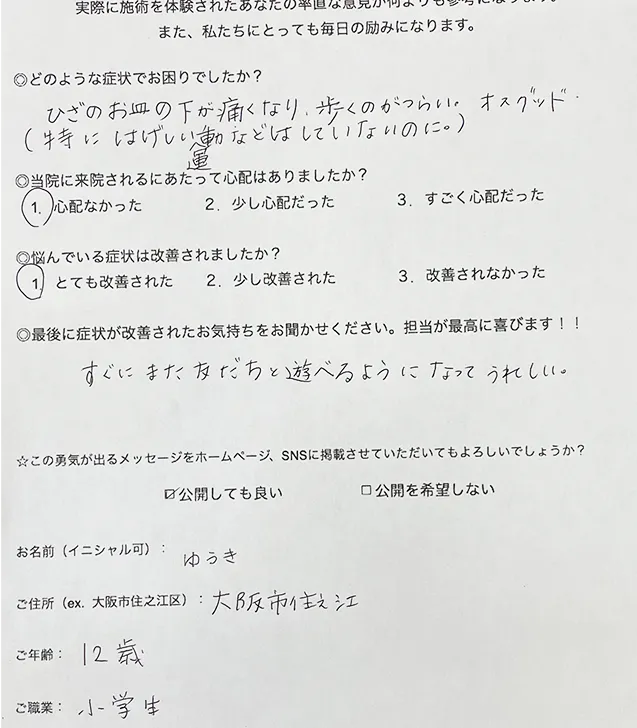 実際に施術を体験されたあなたの率直な意見が何よりも参考になります。
また、私たちにとっても毎日の励みになります。
◎どのような症状でお困りでしたか？
ひざのお皿の下が痛くなり、歩くのがつらい。オスグッド.
(特にはげしい運動などはしていないのに。)
◎当院に来院されるにあたって心配はありましたか？
1. 心配なかった 2. 少し心配だった 3. すごく心配だった
◎悩んでいる症状は改善されましたか？
1 とても改善された 2. 少し改善された 3. 改善されなかった
◎最後に症状が改善されたお気持ちをお聞かせください。担当が最高に喜びます！！
すぐにまた友だちと遊べるようになってうれしい。
☆この勇気が出るメッセージをホームページ、SNSに掲載させていただいてもよろしいでしょうか？
☑公開しても良い □公開を希望しない
お名前（イニシャル可）： ゆうき
ご住所（ex. 大阪市住之江区）： 大阪市住之江
ご年齢： 12歳
ご職業： 小学生